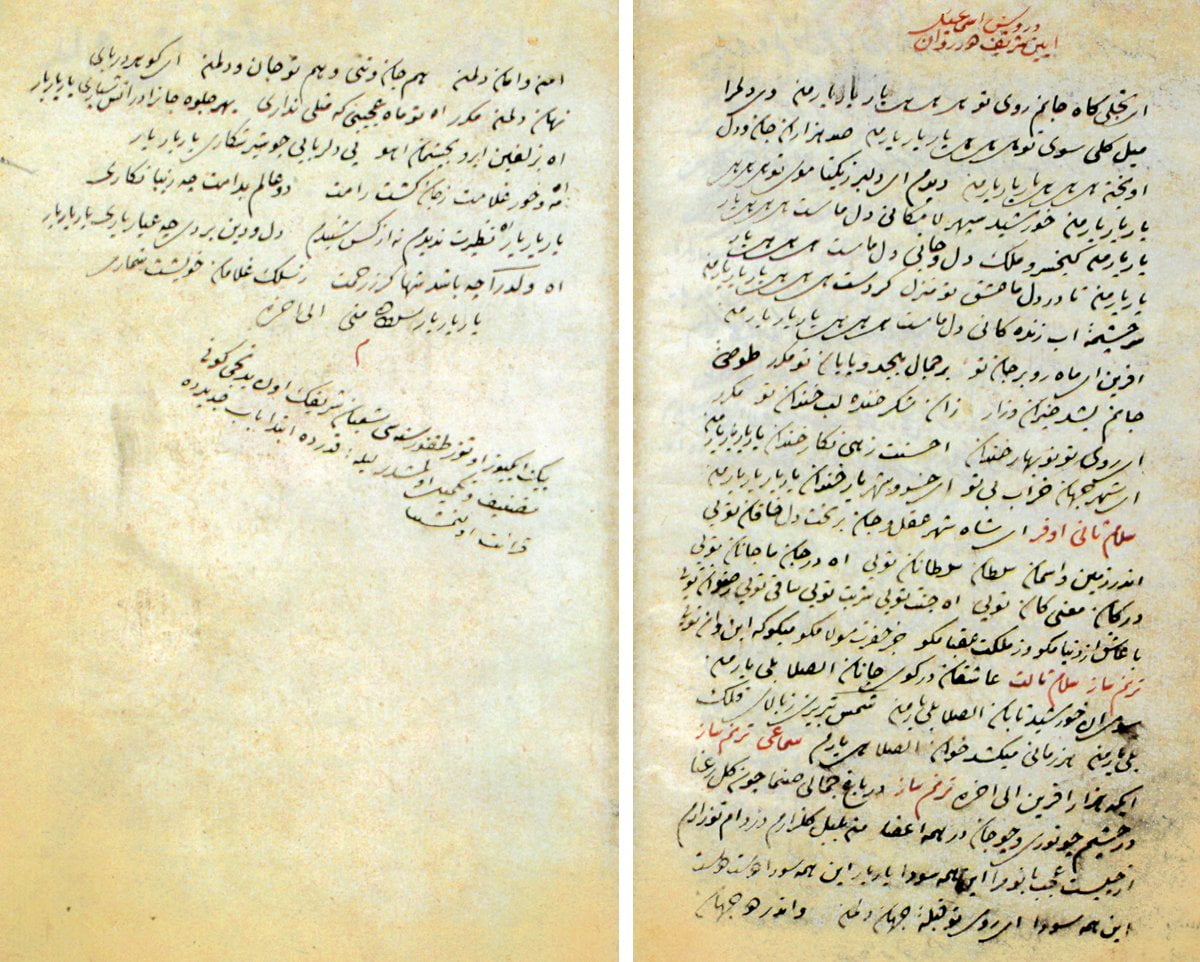 درویش اسماعیل
آیین شریف در روان
ای تجلی کاه جانم روی تو هی هی هی هی یار یار یارمن وی دلمرا
میل کلی سوی تو هی هی هی یار یار یارمن صد هزاران جان ودل
اویخته هی هی هی یار یار یارمن دیدم ای دلبر زیکتا موی تو هی هی هی
یار یار یارمن خورشید سپهر لا مکانی دل ماست هی هی هی یار
یار یارمن کیخسرو ملک دل وجانی دل ماست هی هی هی یار
یار یارمن تا در دل ما عشق تو منزل کردست هی هی هی یار یار یارمن
سر چشمهٔ اب زنده کانی دل ماست هی هی هی یار یار یارمن
افرین ای ماه رو بر جان تو بر جمال بیحد وپایان تو مکرر طوطئ
جانم بشد حیران وزار زان شکر خنده لب خندان تو مکرر
ای روی تو نو بهار خندان احسنت زهی نکار خندان یار یار یارمن
ای شهر جهان خراب بی تو ای خسرو شهریار خندان یار یار یار یارمن
سلام ثانی اوفر ای شاه شهر عقل وجان بر تخت دل خاقان تویی
اندر زمین واسمان سلطان سلطانان تویی اه در جان ما جانان تویی
در کان معنی کان تویی اه جنت تویی شربت تویی ساقی تویی رضوان تویی
با عاشق از دنیا مکو وز ملکت عقبا مکو جز حضرت مولا مکو میکو که این وان تویی
ترنم ساز سلام ثالث عاشقان در کوی جانان الصلا بلی یارمن
سوی ان خورشید تابان الصلا بلی یارمن شمس تبریزی زبالای فلک
بلی یارمن هر زمانی میکشد خوان الصلا هی یارم سماعی ترنم ساز
ایکه هزار افرین الی اخره ترنم ساز در باغ جمالی صنما چون کل رعنا
در چشم چو نوری وچو جان در همه اعضا من بلبل کلزارم ودر دام تو زارم
از چیست عجب با تو مرا این همه سودا یار یار این همه سودا دوست دوست
این همه سودا ای روی تو قبلهٔ جهان دلمن واندر دو جهان
امن وامان دلمن هم جان وتنی وهم تو جان ودلمن ای کوهر دریایی
نهان دلمن مکرر اه تو ماه عجیبی که مثلی نداری بهر جلوه جانرا در اتش سپاری یار یار یار
اه بزلفین ابرو بچشمان اهو پی دلربایی چو شیر شکاری یار یار یار
اه مه وخور غلامت زجان کشت رامت دو عالم بدامت چه زیبا نکاری
یار یار یار اه نظیرت ندیدم نه از کس شنیدم دل ودین بردی چه عیار یاری یار یار یار
اه ولدرا چه باشد شها کر زرحمت زسلک غلامان خویشت شماری
یار یار یار سلطان منی الی اخره
م
بیک ایکیوز اوتوز طقوز سنه سی شعبان شریفک اون بدنجی کونی
تصنیف وتکمیل اولمشدر لیلهٔ قدرده ابتدا باب جدیدده
قرائت اولنمشدر